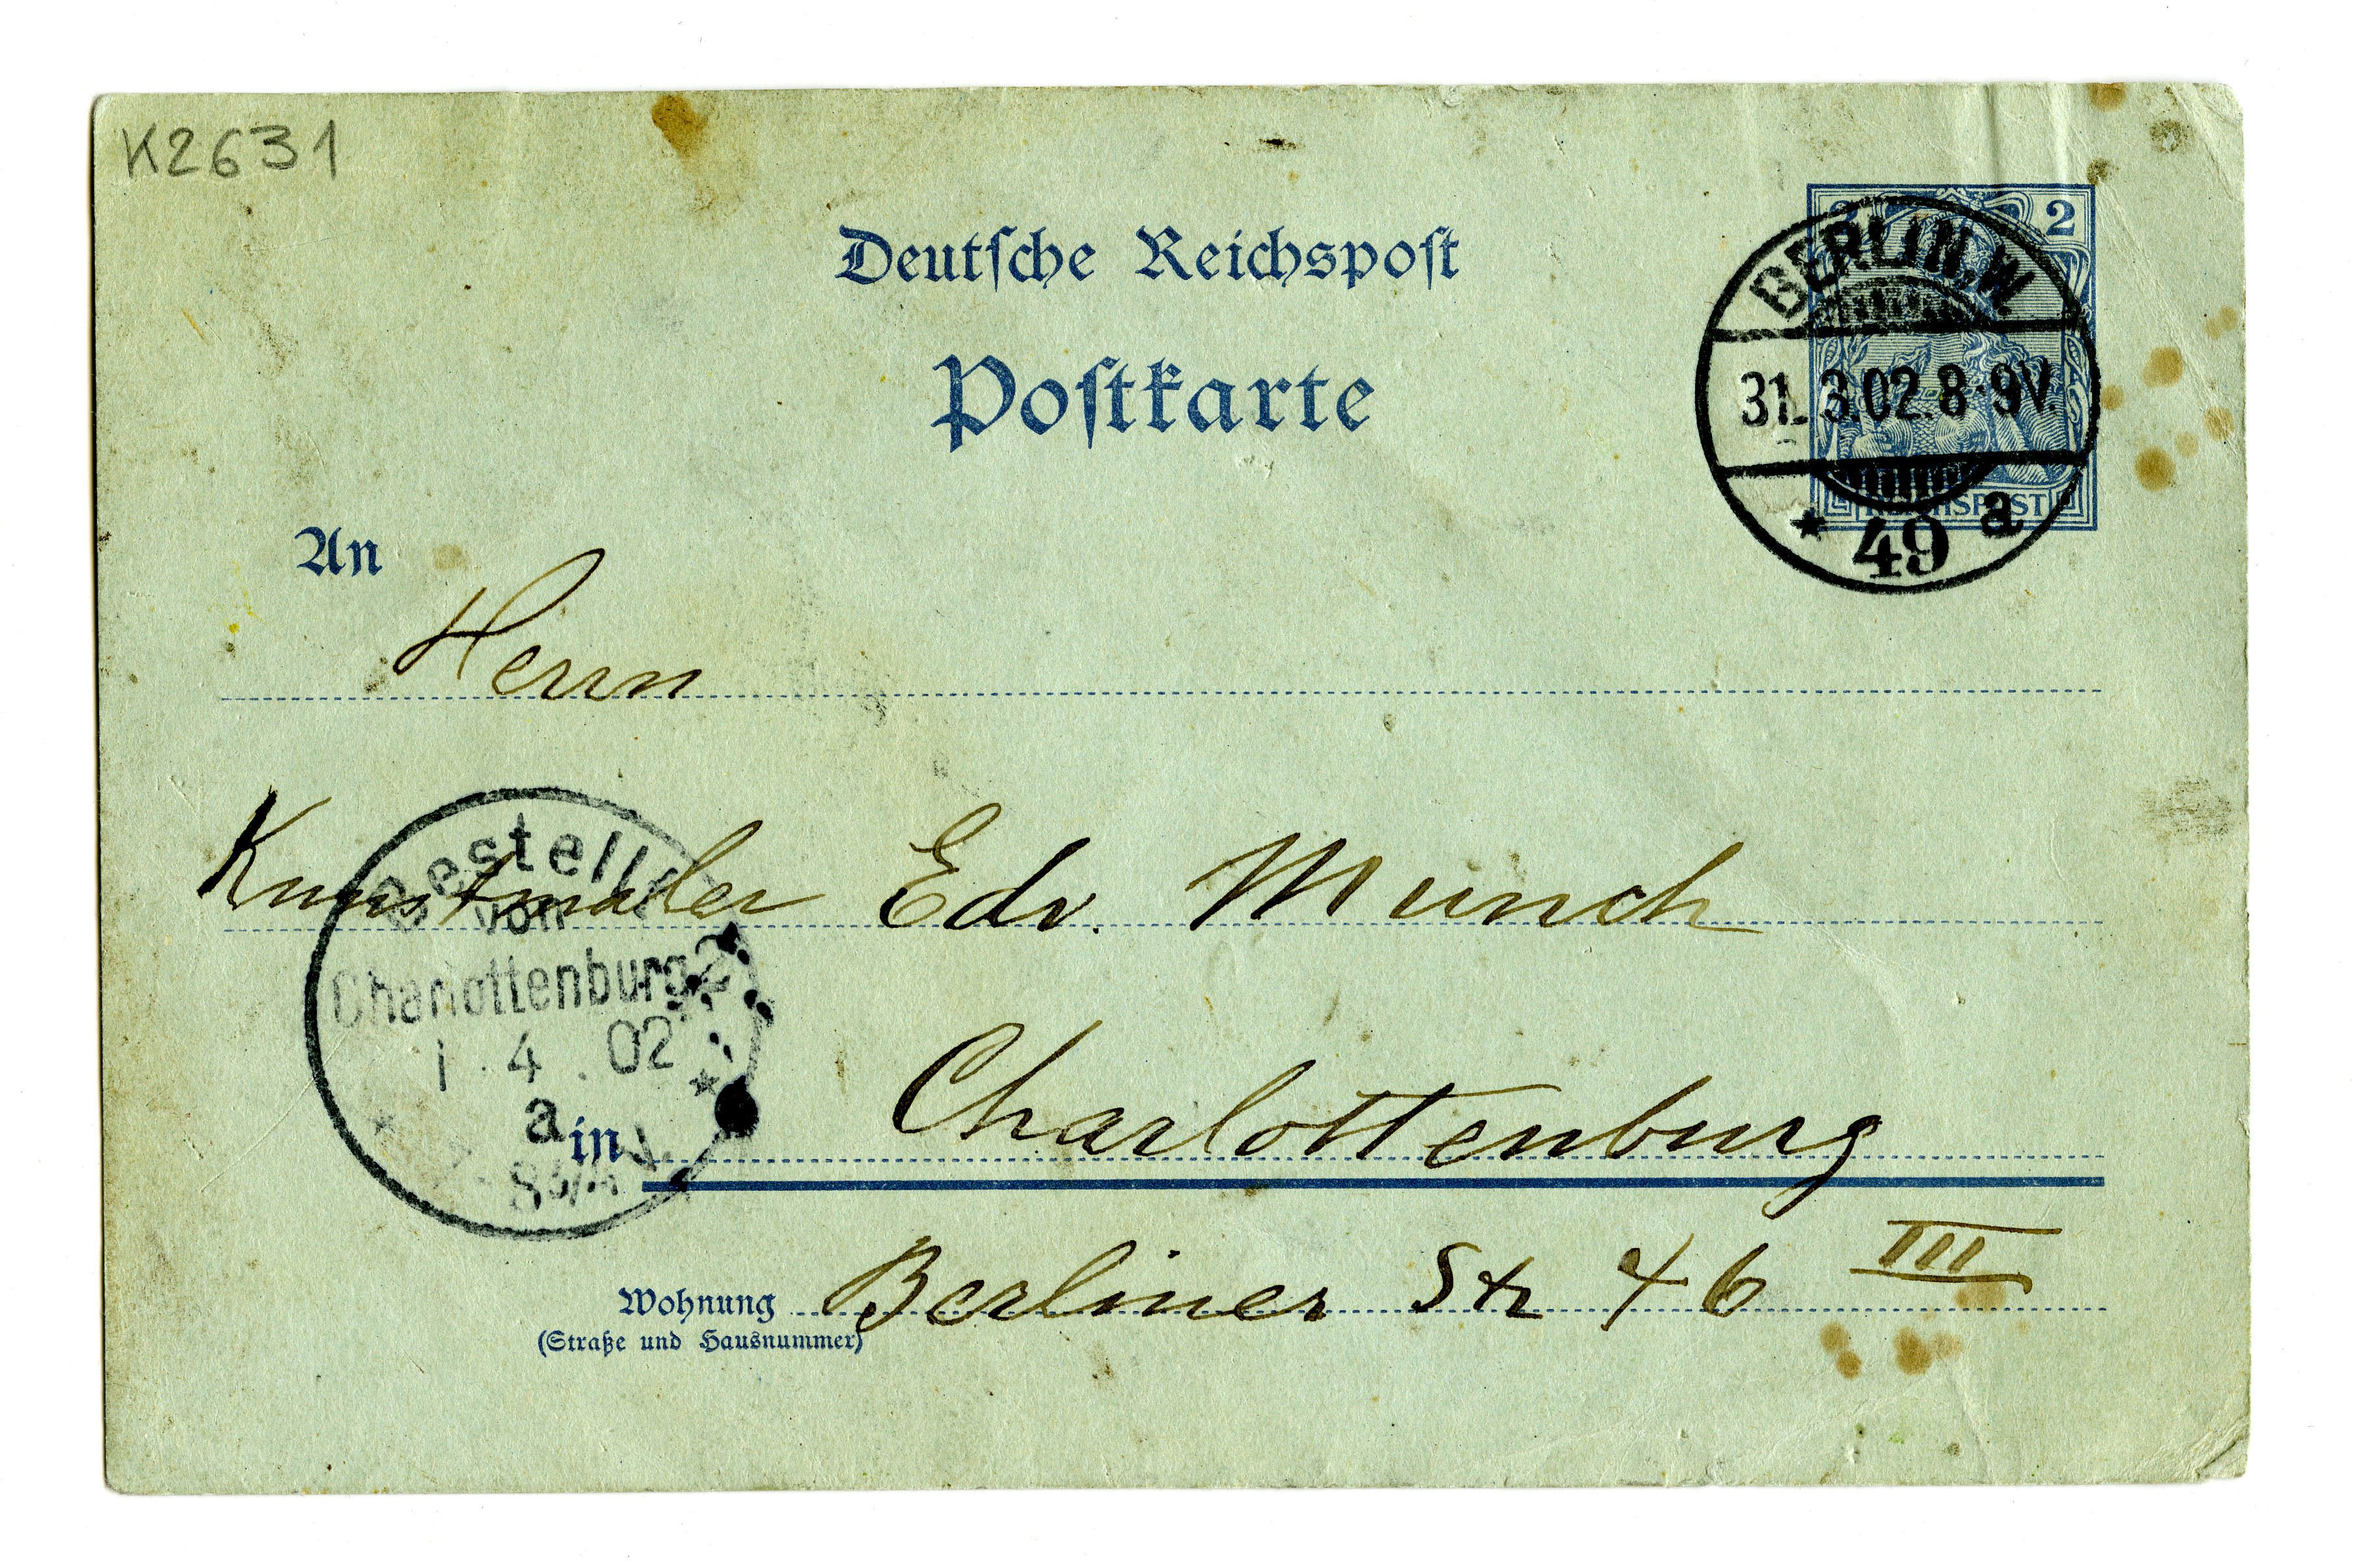 K2631
Deutsche Reichspost
Postkarte
2 2
BERLIN.W.
31.3.02.8-9V.
* 49 a
REICHSPOST
An
Herrn
Kunstmaler Edv. Munch
Bestellt
von
Charlottenburg 2
1.4.02
* a *
8¾ V.
in Charlottenburg
Wohnung Berliner Str 46 III
(Straße und Hausnummer)